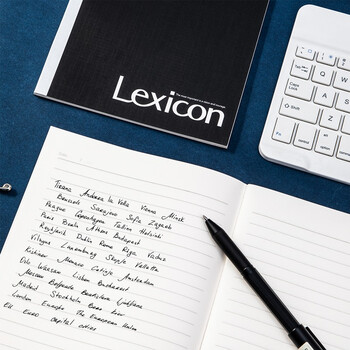 Lexicon
Tirana Andorra la Vella Vienna Minsk
Brussels Sarajevo Sofia Zagreb
Prague Copenhagen Tallinn Helsinki
Paris Berlin Athens Budapest
Reykjavik Dublin Rome Riga Vaduz
Vilnyus Luxemburg Skopje Valletta
Kishinev Monaco Cetinje Amsterdam
Oslo Warsaw Lisbon Bucharest
Moscow Belgrade Ljubljana
Madrid Stockholm Bern
London Europe The European
EU Euro capital cities
Tab Q W
Caps Lock A
Shift Z
Fn